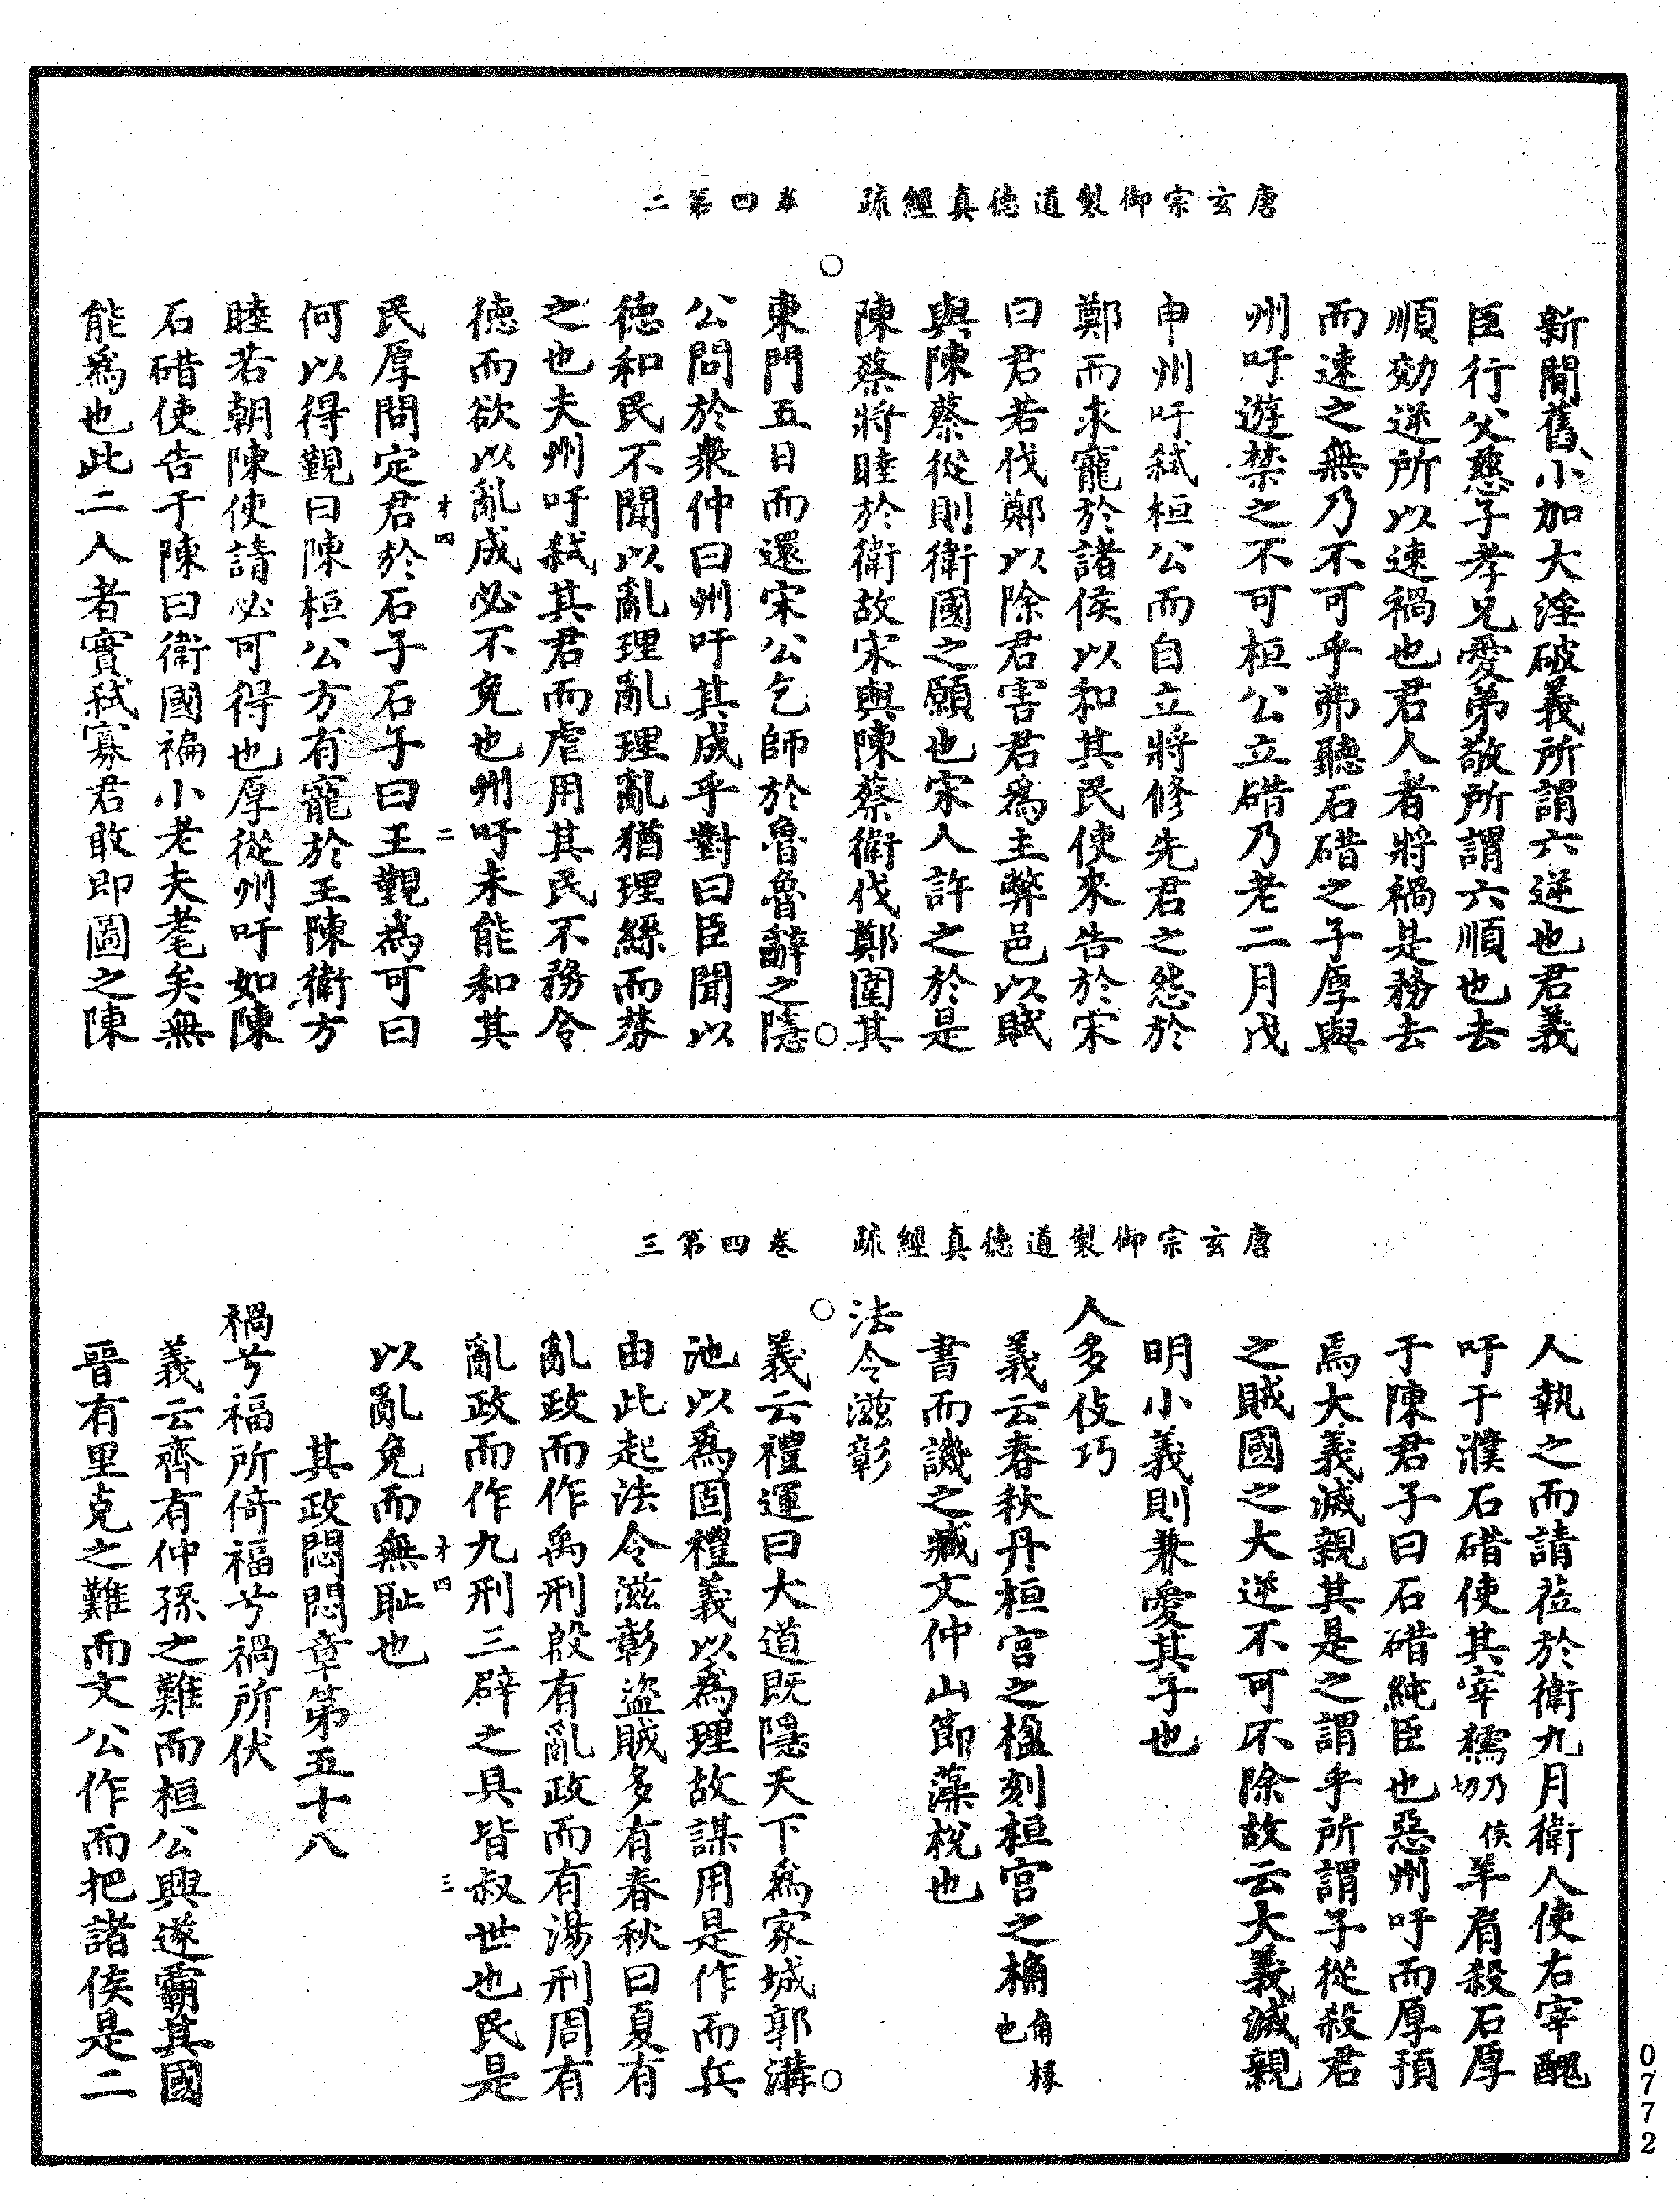 唐玄宗御製道德真經疏　卷四第二
新間舊小加大淫破義所謂六逆也君義
臣行父慈子孝兄愛弟敬所謂六順也去
順効逆所以速禍也君人者將禍是務去
而速之無乃不可乎弗聽石碏之子厚與
州吁遊禁之不可桓公立碏乃老二月戊
申州吁弒桓公而自立將修先君之怨於
鄭而求寵於諸侯以和其民使來告於宋
曰君若伐鄭以除君害君為主弊邑以賦
與陳蔡從則衛國之願也宋人許之於是
陳蔡將睦於衛故宋與陳蔡衛伐鄭圍其
東門五日而還宋公乞師於魯魯辭之隱
公問於衆仲曰州吁其成乎對曰臣聞以
德和民不聞以亂理亂理亂猶理絲而棼
之也夫州吁弒其君而虐用其民不務令
德而欲以亂成必不免也州吁未能和其
才四　二
民厚問定君於石子石子曰王覲為可曰
何以得覲曰陳桓公方有寵於王陳衛方
睦若朝陳使請必可得也厚從州吁如陳
石碏使告于陳曰衛國褊小老夫耄矣無
能為也此二人者實弒寡君敢即圖之陳
唐玄宗御製道德真經疏　卷四第三
人執之而請蒞於衛九月衛人使右宰醜
吁于濮石碏使其宰獳乃侯切羊肩殺石厚
于陳君子曰石碏純臣也惡州吁而厚預
焉大義滅親其是之謂乎所謂子從殺君
之賊國之大逆不可不除故云大義滅親
明小義則兼愛其子也
人多伎巧
義云春秋丹桓宮之楹刻桓宮之桷角椽也
書而譏之臧文仲山節藻梲也
法令滋彰
義云禮運曰大道既隱天下為家城郭溝
池以為固禮義以為理故謀用是作而兵
由此起法令滋彰盜賊多有春秋曰夏有
亂政而作禹刑殷有亂政而有湯刑周有
亂政而作九刑三辟之具皆叔世也民是
才四　三
以亂免而無恥也
其政悶悶章第五十八
禍兮福所倚福兮禍所伏
義云齊有仲孫之難而桓公興遂霸其國
晉有里克之難而文公作而把諸侯是二
0772